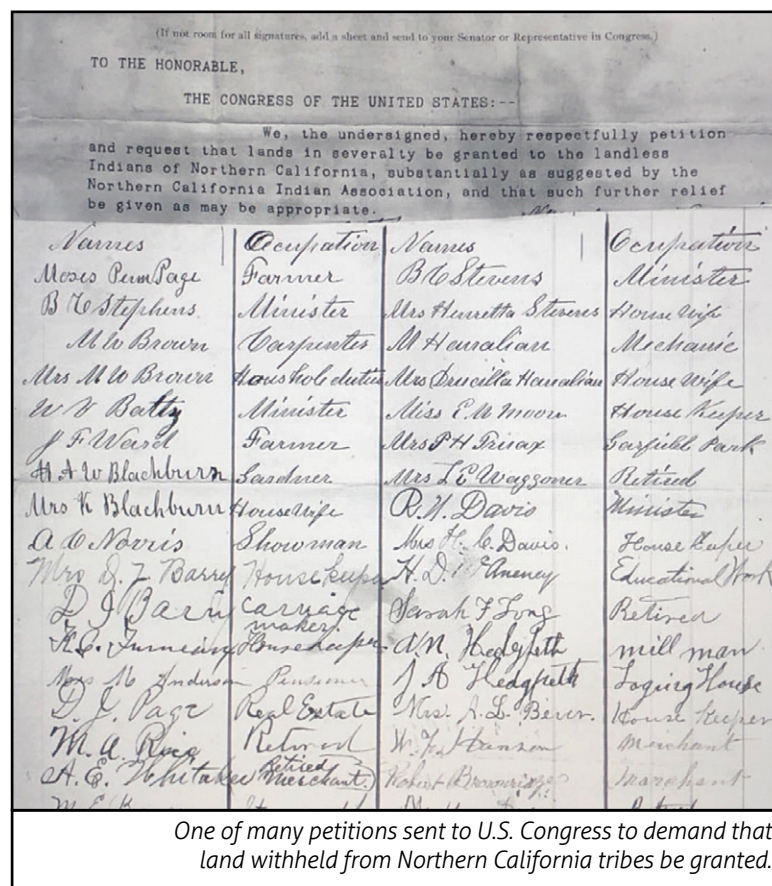 (If not room for all signatures, add a sheet and send to your Senator or Representative in Congress.)
TO THE HONORABLE,
THE CONGRESS OF THE UNITED STATES:--
We, the undersigned, hereby respectfully petition
and request that lands in severalty be granted to the landless
Indians of Northern California, substantially as suggested by the
Northern California Indian Association, and that such further relief
be given as may be appropriate.
Names Occupation Names Occupation
Moses Page Farmer B C Stevens Minister
B C Stephens Minister Mrs Henretta Stevens House Wife
M W Brown Carpenter M Mechanic
Mrs M W Brown Mrs Druscilla House Wife
W V Batty Minister Miss E. M Moon House Keeper
J F Ward Farmer Mrs P H Garfield Park
H A W Blackburn Gardner Mrs L E Waggoner Retired
Mrs K Blackburn House Wife R. N. Davis Minister
A C Norris Showman Mrs H. C. Davis. House Keeper
Mrs D. J. Barry Housekeeper H. D. Educational Work
D J Barry Carriage Sarah F Long Retired
maker.
Housekeeper A. N. Hedgpeth mill man
Mrs M Anderson J A Hedgpeth Loging House
D. J. Page Real Estate Mrs. House Keeper
M. A. Rice Retired Hanson Merchant
A. E. Whitaker Retired Merchant. Robert Merchant
One of many petitions sent to U.S. Congress to demand that
land withheld from Northern California tribes be granted.